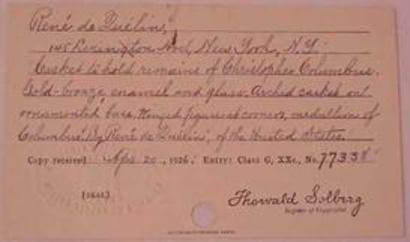 René de Quélin,
145 Lexington Ave., New York, N.Y.
Casket to hold remains of Christopher Columbus.
Gold-bronze enamel and glass. Arched casket on
ornamented base. Winged figures at corners, medallion of
Columbus. By René de Quélin, of the United States.
Copy received Apr. 20, 1926. Entry: Class G, XXc., No. 77338
(SEAL)
Thorvald Solberg
Register of Copyrights